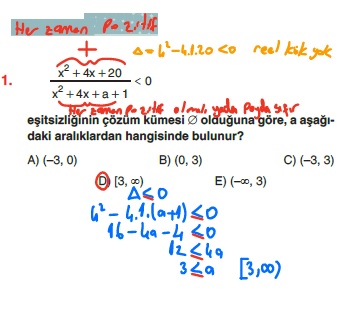 Her zaman Pozitif
+ Δ=4²-4.1.20<0 reel kök yok
1. x²+4x+20 / x²+4x+a+1 < 0
Her zaman Pozitif olmalı yada Payda sıfır
eşitsizliğinin çözüm kümesi Ø olduğuna göre, a aşağı-
daki aralıklardan hangisinde bulunur?
A) (–3, 0) B) (0, 3) C) (–3, 3)
D) [3, ∞) E) (–∞, 3)
Δ≤0
4²-4.1.(a+1)≤0
16-4a-4≤0
12≤4a
3≤a [3,∞)